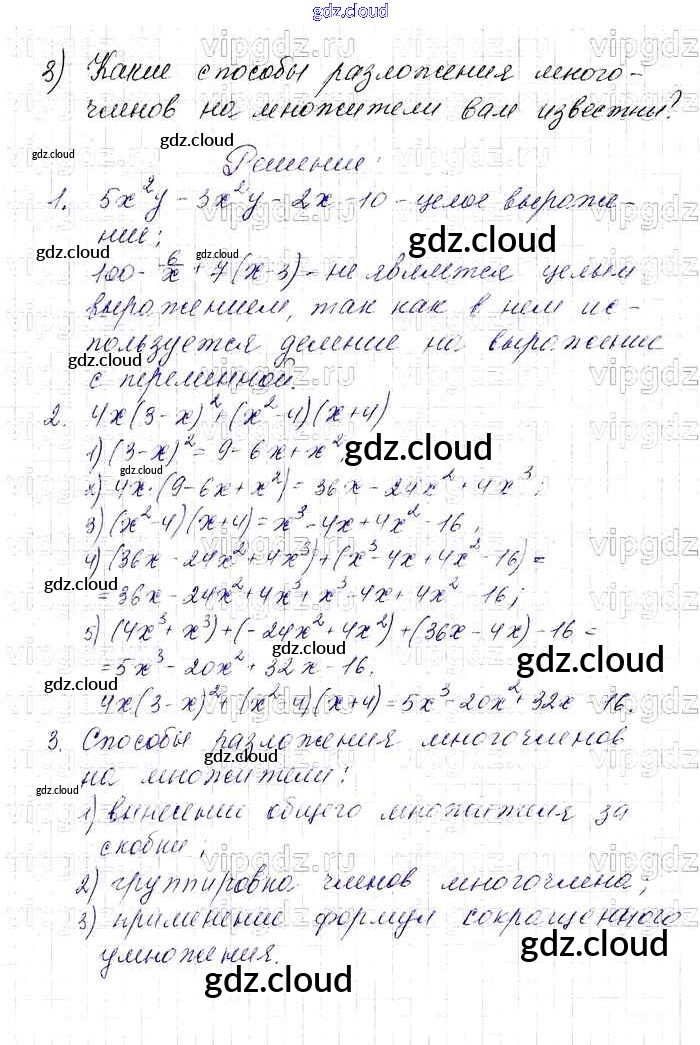 gdz.cloud
3) Какие способы разложения много-
членов на множители вам известны?
gdz.cloud
gdz.cloud
Решение:
1. 5x²y - 3x²y - 2x - 10 - целое выраже-
ние;
gdz.cloud gdz.cloud gdz.cloud
100 - 6/x + 7(x-3) - не является целым
выражением, так как в нем ис-
пользуется деление на выражение
gdz.cloud gdz.cloud
с переменной.
2. 4x(3-x)² + (x²-4)(x+4)
1) (3-x)² = 9 - 6x + x²;
gdz.cloud
gdz.cloud
2) 4x·(9-6x+x²) = 36x - 24x² + 4x³;
3) (x²-4)(x+4) = x³ - 4x + 4x² - 16;
4) (36x - 24x² + 4x³) + (x³ - 4x + 4x² - 16) =
gdz.cloud
= 36x - 24x² + 4x³ + x³ - 4x + 4x² - 16;
5) (4x³ + x³) + (-24x² + 4x²) + (36x - 4x) - 16 =
= 5x³ - 20x² + 32x - 16.
gdz.cloud
gdz.cloud
4x(3-x)² + (x²-4)(x+4) = 5x³ - 20x² + 32x - 16.
3. Способы разложения многочленов
gdz.cloud
на множители:
gdz.cloud
1) вынесение общего множителя за
скобки;
2) группировка членов многочлена;
3) применение формул сокращенного
умножения.
gdz.cloud
gdz.cloud